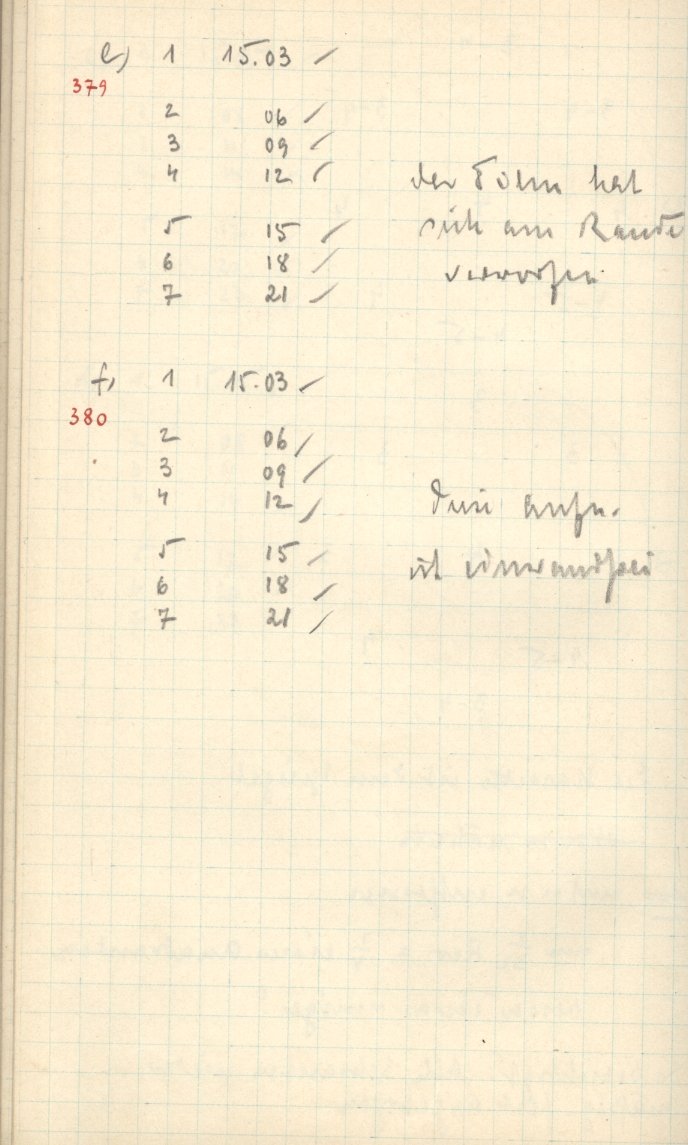 e) 1 15.03 /
379
2 06 /
3 09 /
4 12 /
der Film hat
5 15 /
sich am Rande
6 18 /
verworfen
7 21 /
f) 1 15.03 /
380
2 06 /
3 09 /
4 12 /
Diese Aufn.
5 15 /
ist einwandfrei
6 18 /
7 21 /